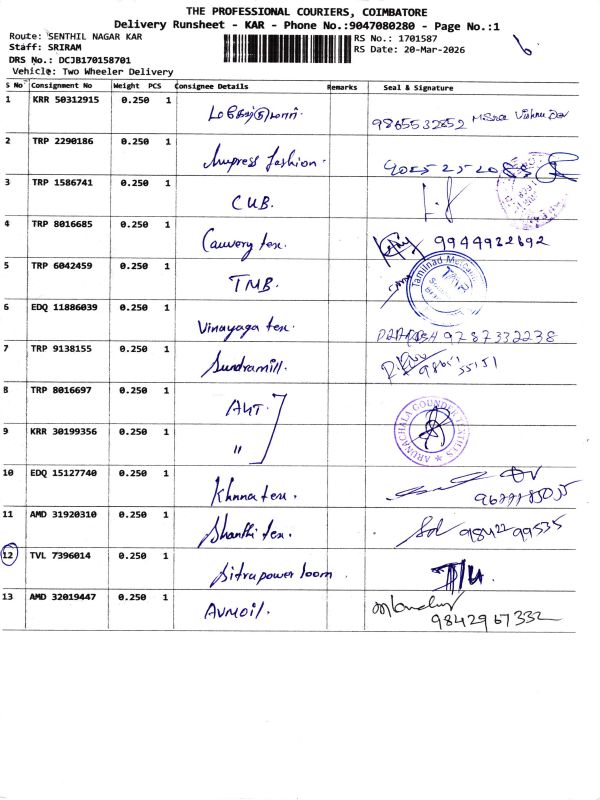 THE PROFESSIONAL COURIERS, COIMBATORE
Delivery Runsheet - KAR - Phone No.:9047080280 - Page No.:1
Route: SENTHIL NAGAR KAR RS No.: 1701587
Staff: SRIRAM RS Date: 20-Mar-2026
DRS No.: DCJB170158701
Vehicle: Two Wheeler Delivery
S No Consignment No Weight PCS Consignee Details Remarks Seal & Signature
1 KRR 50312915 0.250 1 9865532852
2 TRP 2290186 0.250 1 fashion.
3 TRP 1586741 0.250 1 CUB.
4 TRP 8016685 0.250 1 Cauvery tex. 9944922892
5 TRP 6042459 0.250 1 TMB. Tamilnad
6 EDQ 11886039 0.250 1 Vinayaga tex. 9787332238
7 TRP 9138155 0.250 1 Sundramill.
8 TRP 8016697 0.250 1 AHT. ARUNACHALA GOUNDER TEXTILES
9 KRR 30199356 0.250 1 "
10 EDQ 15127740 0.250 1 Khnna tex.
11 AMD 31920310 0.250 1 Shanthi tex. 9842299535
12 TVL 7396014 0.250 1 Sitrapowerloom.
13 AMD 32019447 0.250 1 AVMOil. 9842967332